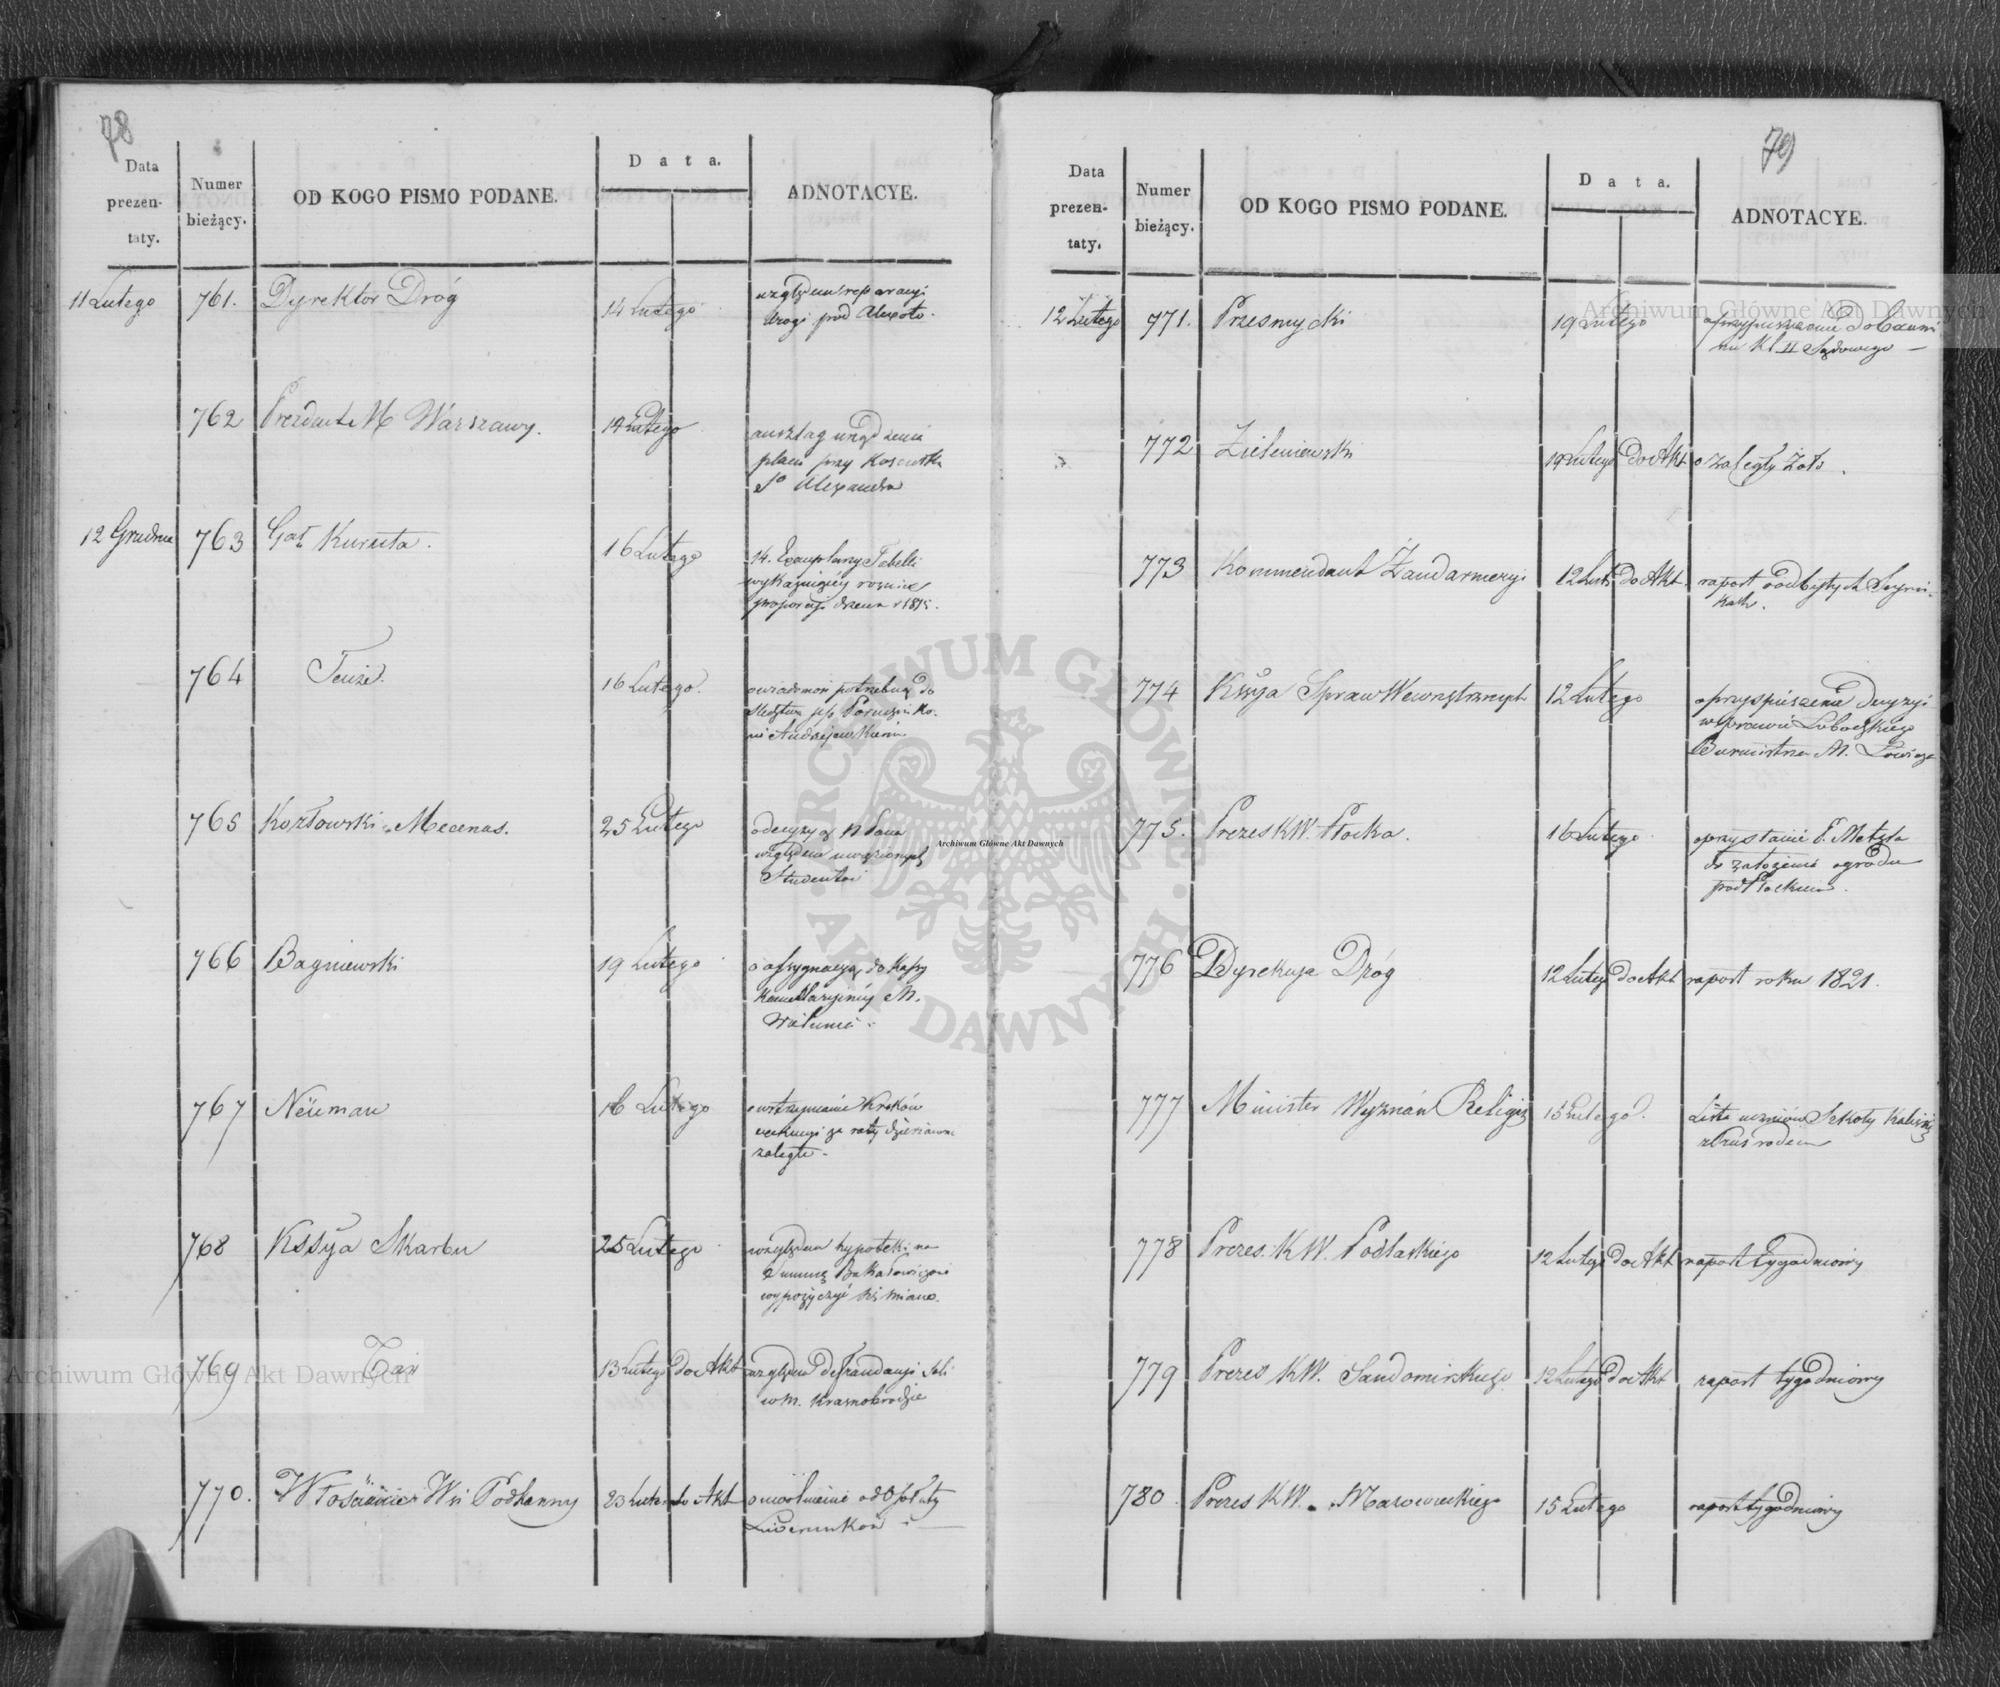 78
Data prezen- taty.
Numer bieżący.
OD KOGO PISMO PODANE.
Data.
ADNOTACYE.
11 Lutego 761. Dyrektor Dróg 14 Lutego względem reparacyi
drogi pod
762 Prezdent M Warszawy. 14 Lutego
placu przy
So Alexandra
12 Grudnia 763 Gał Kuruta. 16 Lutego 14. Exemplarzy Tabelli
764 Tenże. 16 Lutego.
765 Kozłowski Mecenas. 25 Lutego
względem
Studentów
766 Bagniewski 19 Lutego o assygnacyą do Kassy
M.
Wieluniu
767 Neüman 16 Lutego o wstrzymanie Kroków
za raty
zaległe
768 Kssya Skarbu 25 Lutego względem hypoteki na
Summę
769 Taż 13 Lutego do Akt względem defraudacyi Soli
w M. Krasnobrodzie
770. Włościanie Wsi 23 Lutego do Akt o uwolnienie od Opłaty
Liwerunków
79
Data prezen- taty.
Numer bieżący.
OD KOGO PISMO PODANE.
Data.
ADNOTACYE.
12 Lutego 771. Przesmycki 19 Lutego o przypuszczenie do Exami
nu Kl II Sądowego
772 Zieleniewski 19 Lutego do Akt o zaległy Żołd.
773 Kommendant Żandarmeryi 12 Lut do Akt raport o odbytych
774 Kssya Spraw Wewnętrznych 12 Lutego o przyspieszenie Decyzyi
w sprawie
Burmistrza M. Łowicza
775. Prezes KW. Płocka. 16 Lutego o przysłanie P. Metzla
do założenia ogrodu
pod Płockiem.
776 Dyrekcya Dróg 12 Lutego do Akt raport roku 1821.
777 Minister Wyznań Religij 15 Lutego. Lista uczniów Szkoły Kaliskiej
z Prus rodem
778 Prezes. KW. Podlaskiego 12 Lutego do Akt raport tygodniowy
779 Prezes KW. Sandomirskiego 12 Lutego do Akt raport tygodniowy
780. Prezes KW. Mazowieckiego 15 Lutego raport tygodniowy
Archiwum Główne Akt Dawnych
Archiwum Główne Akt Dawnych
Archiwum Główne Akt Dawnych
ARCHIWUM GŁÓWNE · AKT DAWNYCH ·